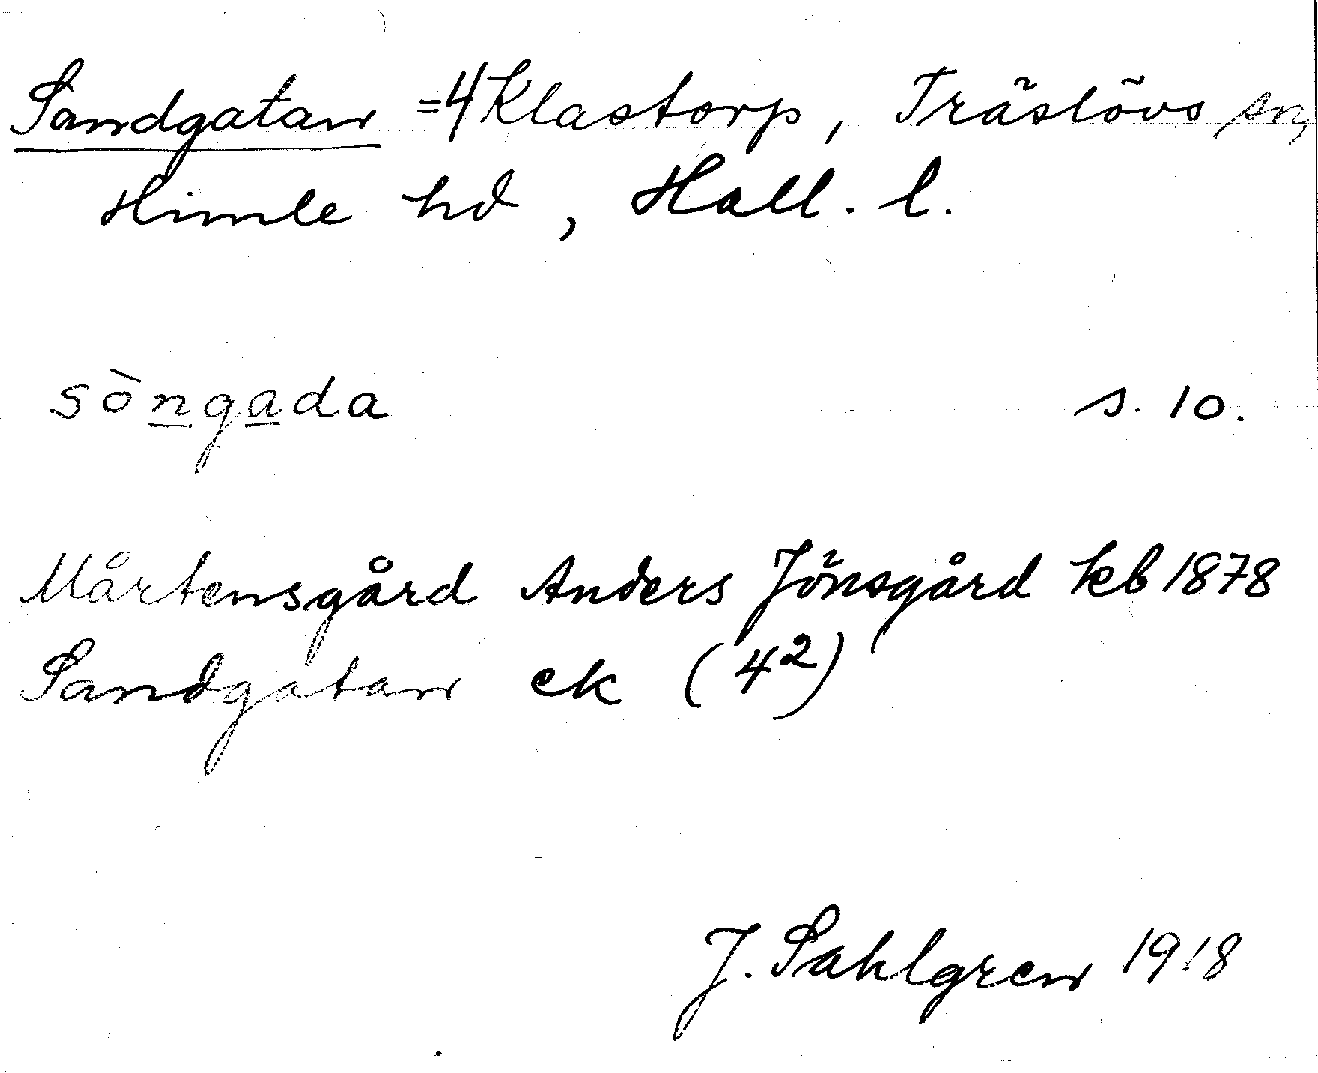 Sandgatan = 4 Klastorp, Träslövs sn,
Himle hd, Hall. l.
sòngada s. 10.
Mårtensgård Anders Jönsgård kb 1878
Sandgatan ek (4²)
J. Sahlgren 1918